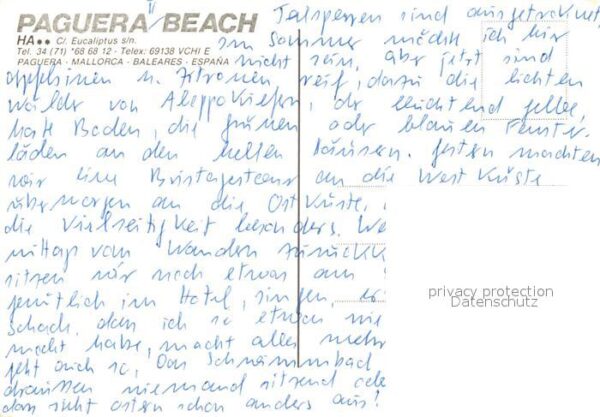 PAGUERA II BEACH
HA•• C/. Eucaliptus s/n.
Tel. 34 (71) *68 68 12 - Telex: 69138 VCHI E
PAGUERA - MALLORCA - BALEARES - ESPAÑA
Talsperren sind ausgetrocknet,
im Sommer möchte ich hier
nicht sein, aber jetzt sind
Appelsinen u. Zitronen reif, dazu die lichten
Wälder von Aleppokiefern, der leuchtend gelbe,
rote Boden, die grünen oder blauen Fenster-
läden an den hellen Häusern. Gestern machten
wir eine an die Westküste
übermorgen an die Ostküste,
die Vielseitigkeit besonders. We
mittags vom Wandern zurückk
sitzen wir noch etwas am
gemütlich im Hotel, singen,
Schach, dan ich so etwas nie
macht habe, macht alles mehr
geht auch so. Das Schwimmbad
draussen niemand sitzend ode
das sieht ostern schon anders aus!
privacy protection
Datenschutz